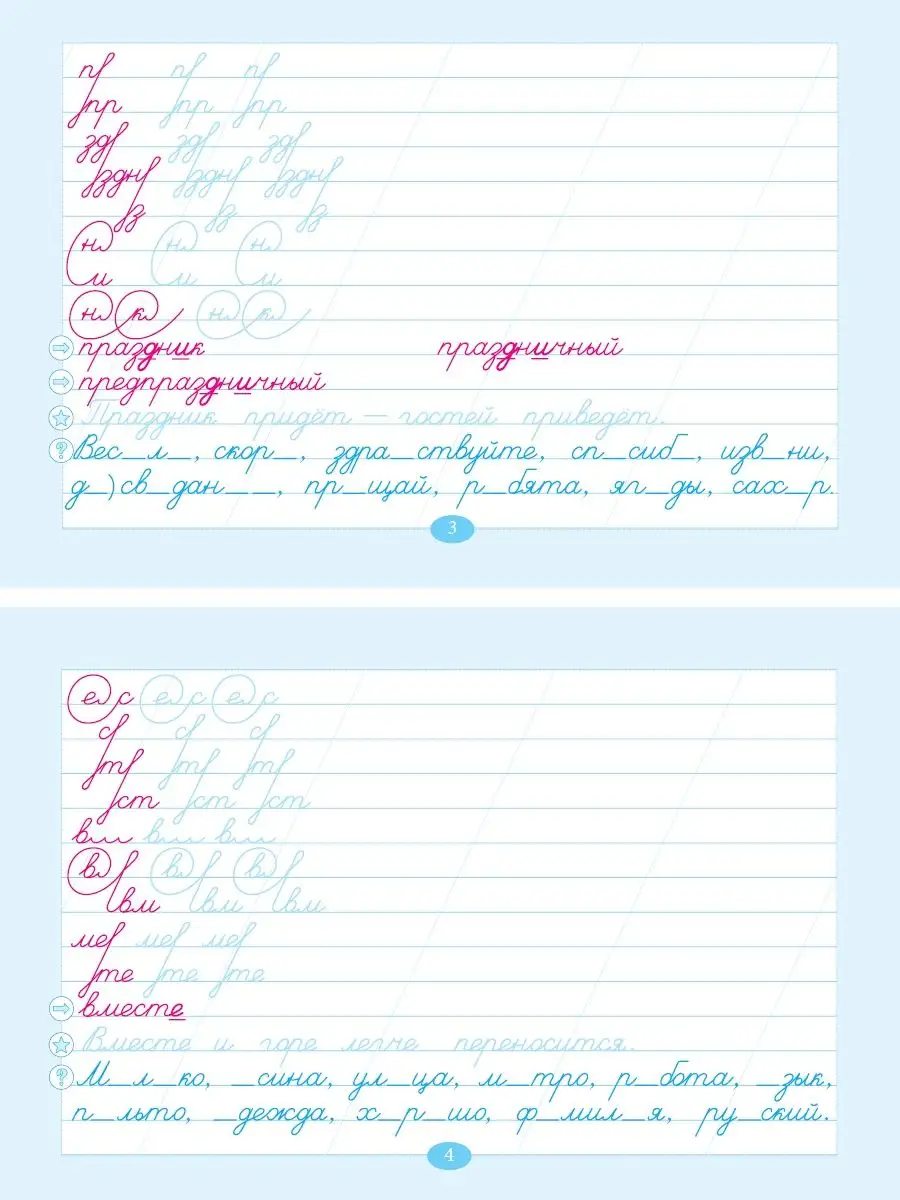 п п п
пр пр пр
зд зд зд
здн здн здн
з з з
н н н
и и и
н к н к
праздник праздничный
предпраздничный
Праздник придёт — гостей приведёт.
? Вес_л_, скор_, здра_ствуйте, сп_сиб_, изв_ни,
д_)св_дан_ _, пр_щай, р_бята, яг_ды, сах_р.
3
е с е с е с
с с с
т т т
ст ст ст
в в в
в в в
вм вм вм
ме ме ме
те те те
вместе
Вместе и горе легче переносится.
? М_л_ко, _сина, ул_ца, м_тро, р_бота, _зык,
п_льто, _дежда, х_р_шо, ф_мил_я, ру_ский.
4